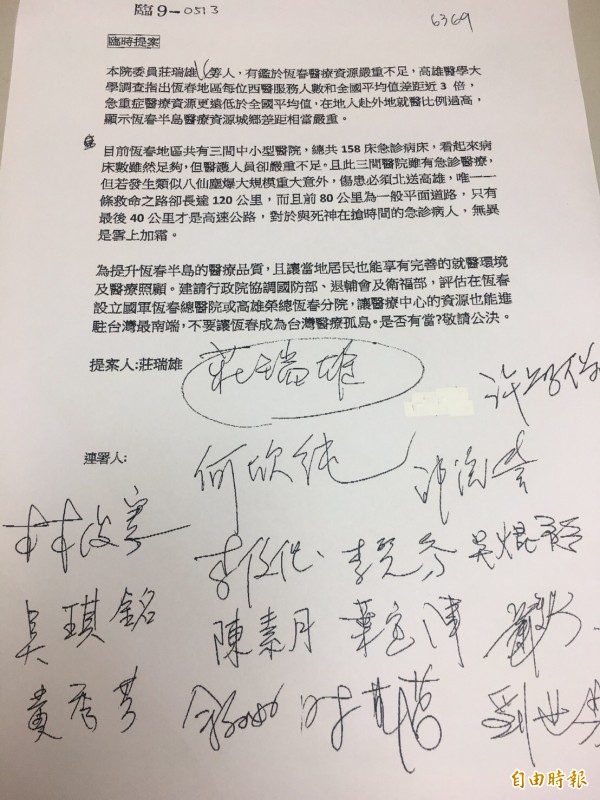 臨 9-0513
6369
臨時提案
本院委員莊瑞雄16等人，有鑑於恆春醫療資源嚴重不足，高雄醫學大
學調查指出恆春地區每位西醫服務人數和全國平均值差距近 3 倍，
急重症醫療資源更遠低於全國平均值，在地人赴外地就醫比例過高，
顯示恆春半島醫療資源城鄉差距相當嚴重。
目前恆春地區共有三間中小型醫院，總共 158 床急診病床，看起來病
床數雖然足夠，但醫護人員卻嚴重不足。且此三間醫院雖有急診醫療，
但若發生類似八仙塵爆大規模重大意外，傷患必須北送高雄，唯一一
條救命之路卻長達 120 公里，而且前 80 公里為一般平面道路，只有
最後 40 公里才是高速公路，對於與死神在搶時間的急診病人，無異
是雪上加霜。
為提升恆春半島的醫療品質，且讓當地居民也能享有完善的就醫環境
及醫療照顧。建請行政院協調國防部、退輔會及衛福部，評估在恆春
設立國軍恆春總醫院或高雄榮總恆春分院，讓醫療中心的資源也能進
駐台灣最南端，不要讓恆春成為台灣醫療孤島。是否有當?敬請公決。
提案人:莊瑞雄 莊瑞雄
連署人:
何欣純
林俊憲
吳焜裕
吳琪銘 陳素月 葉宜津
黃秀芳 劉世芳
自由時報